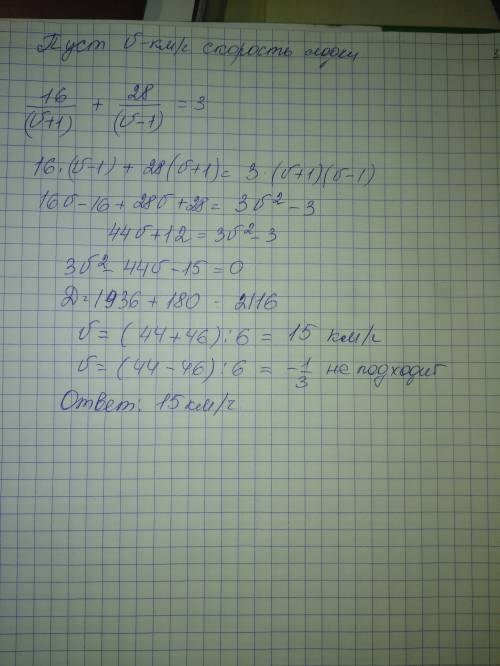 Пуст v-км/ч скорость лодки
16/(v+1) + 28/(v-1) = 3
16·(v-1) + 28(v+1) = 3·(v+1)(v-1)
16v-16+28v+28 = 3v²-3
44v+12 = 3v²-3
3v²-44v-15=0
Д=1936+180 - 2116
v= (44+46):6 = 15 км/ч
v= (44-46):6 = -1/3 не подходит
Ответ: 15км/ч